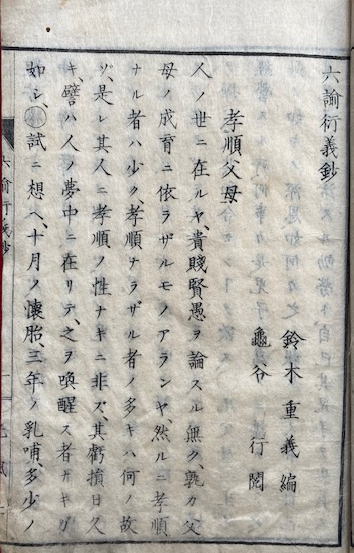 六諭衍義鈔
鈴木重義編
龜谷行閲
孝順父母
人ノ世ニ在ルヤ、貴賤賢愚ヲ論スル無ク、孰カ父
母ノ成育ニ依ラザルモノアランヤ、然ルニ孝順
ナル者ハ少ク、孝順ナラザル者ノ多キハ何ノ故
ゾ、是レ其人ニ孝順ノ性ナキニ非ズ、其虧損日久
キ、譬ハ人ノ夢中ニ在リテ、之ヲ喚醒ス者ナキガ
如シ、試ニ想ヘ、十月ノ懷胎、三年ノ乳哺、多少ノ
六諭衍義鈔
一